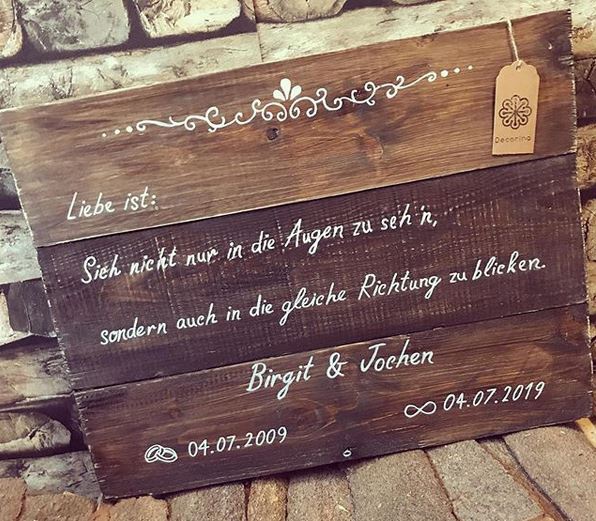 Decorina
Liebe ist:
Sich nicht nur in die Augen zu seh'n,
sondern auch in die gleiche Richtung zu blicken.
Birgit & Jochen
04.07.2009
∞ 04.07.2019